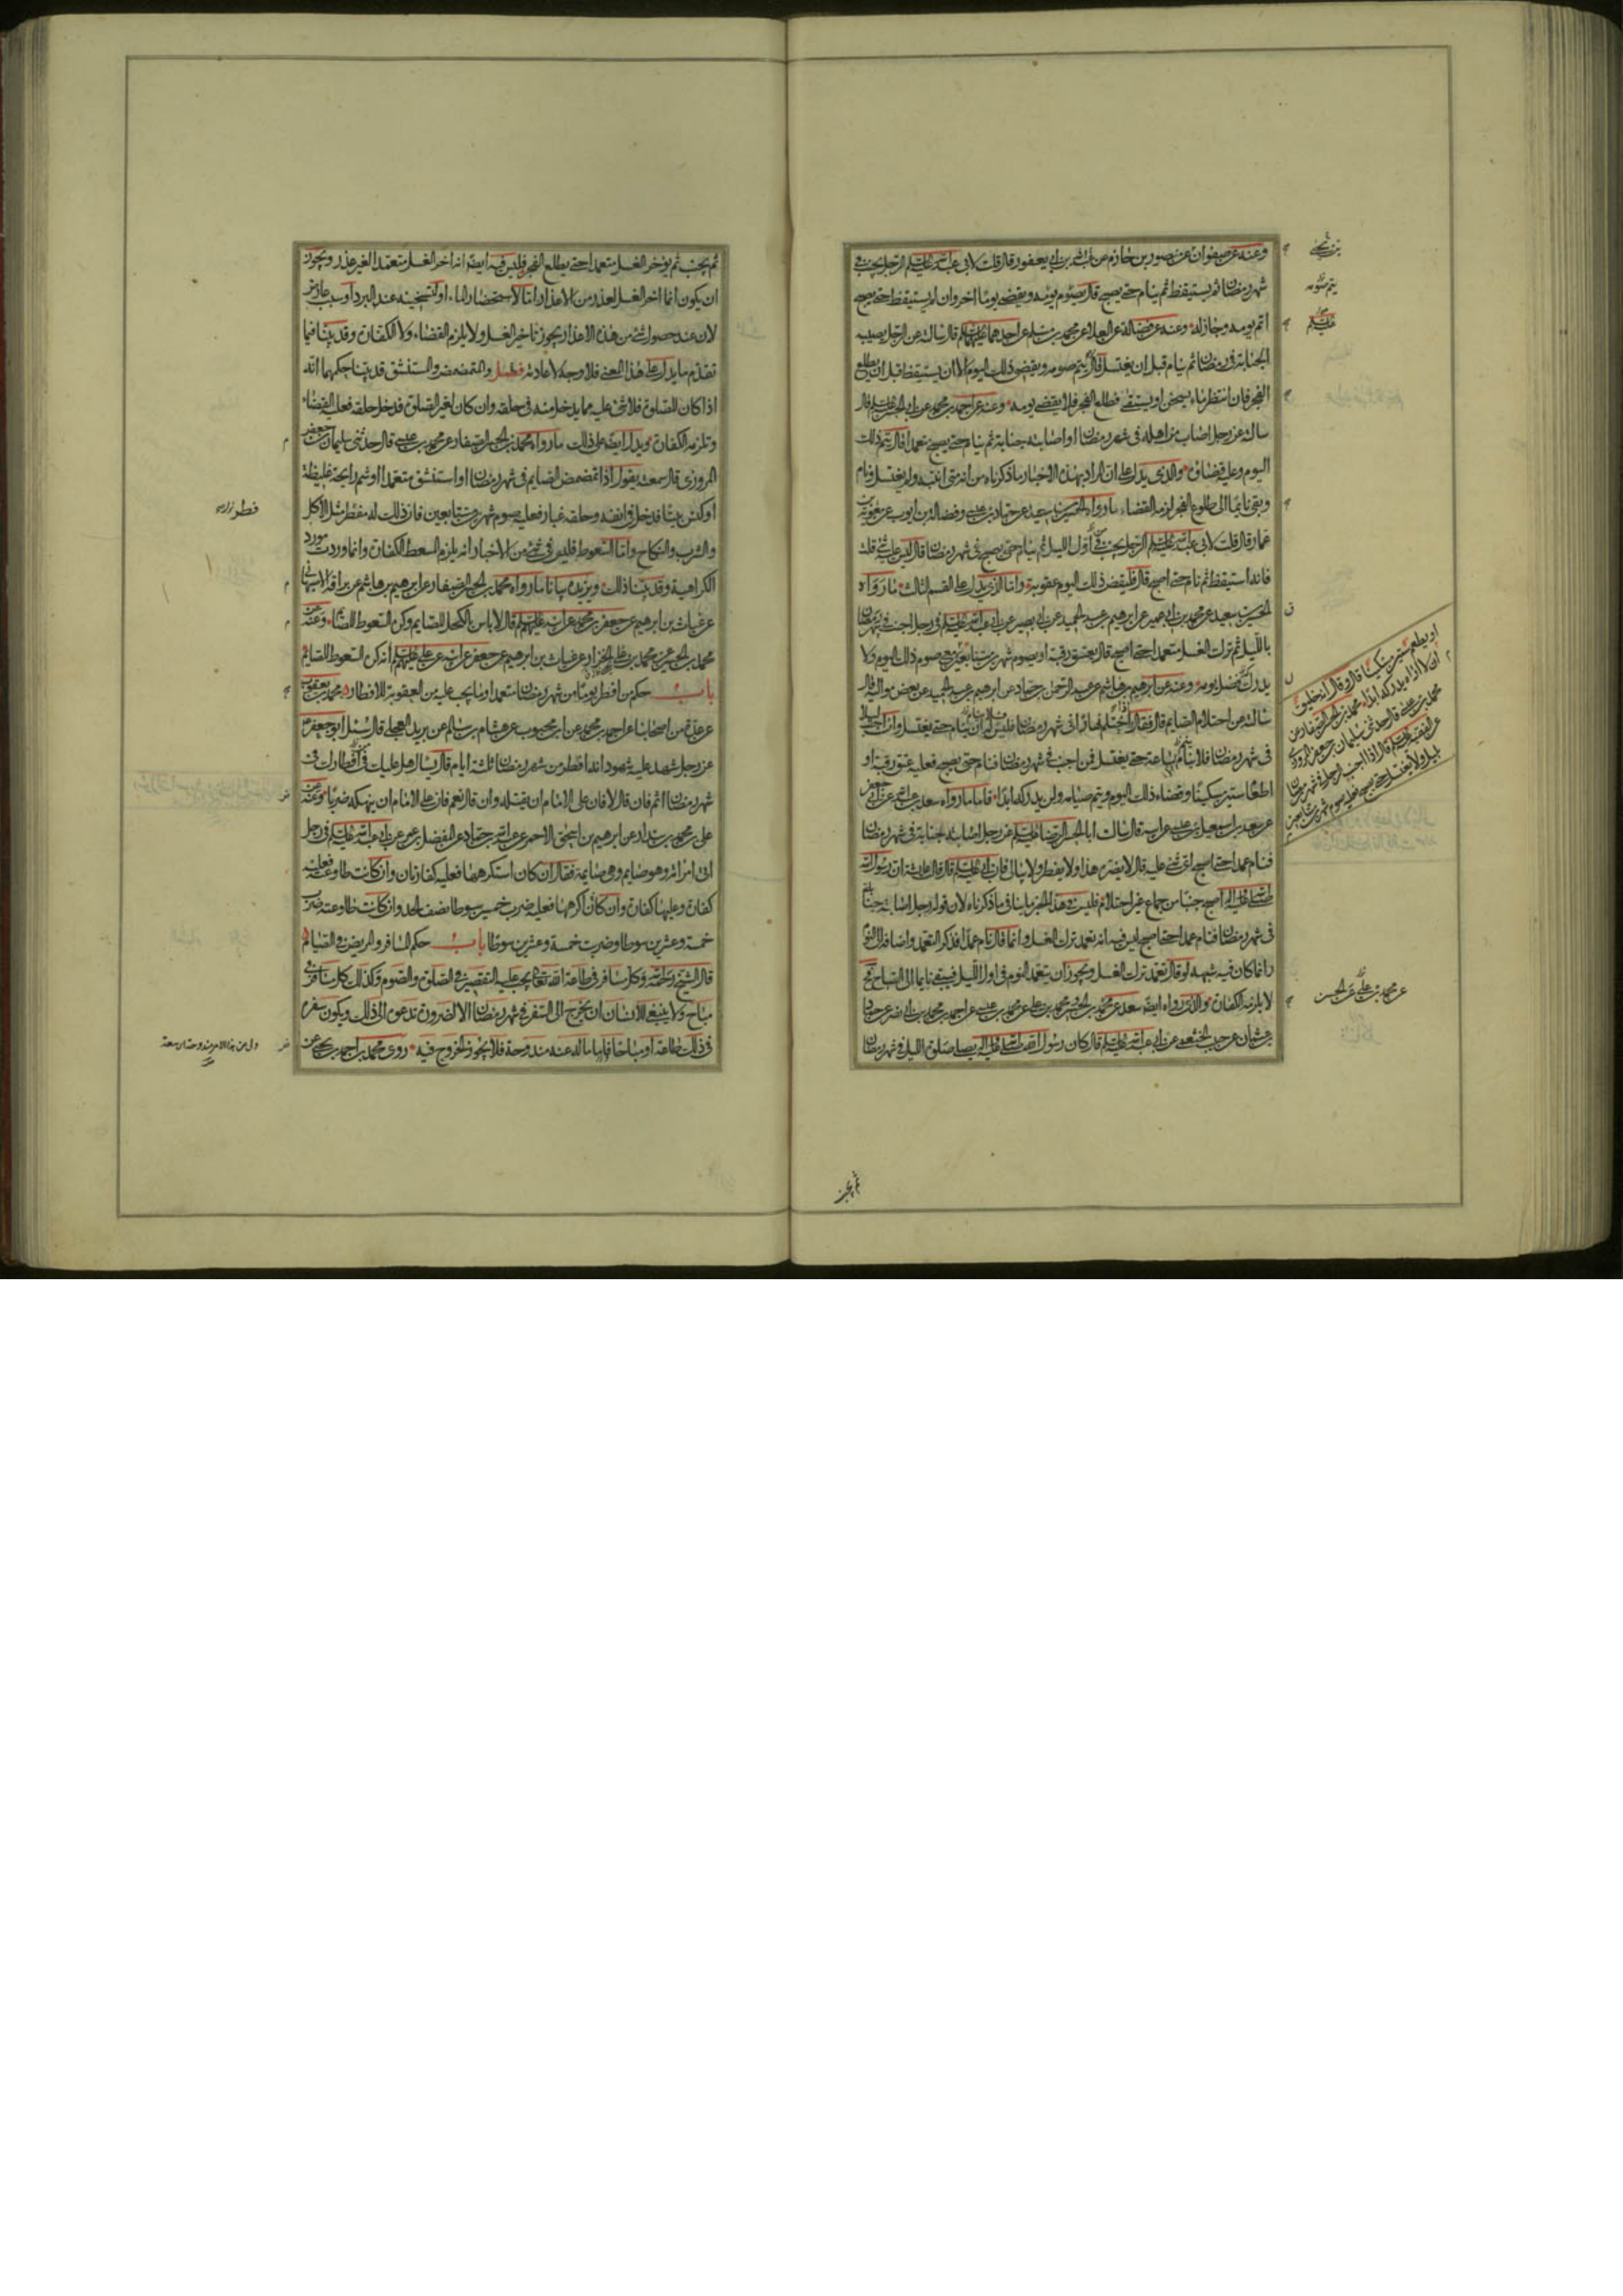 وعنه عن صفوان عن منصور بن حازم عن عبد الله بن ابى يعفور قال قلت لابى عبد الله عليه السلم الرجل يجنب فى
شهر رمضان ثم يستيقظ ثم ينام حتى يصبح قال يصوم يومه ويقضى يوما اخر وان لم يستيقظ حتى يصبح
اتم يومه وجاز له وعنه عن فضالة عن العلا عن محمد بن مسلم عن احدهما عليهما السلم قال سالته عن الرجل يصيبه
الجنابة فى رمضان ثم ينام قبل ان يغتسل قال يتم صومه ويقضى ذلك اليوم الا ان يستيقظ قبل ان يطلع
الفجر فان انتظر ماء يسخن او يستقى فطلع الفجر فلا يقضى يومه وعنه عن احمد بن محمد عن ابى الحسن عليه السلم قال
سالته عن رجل اصاب من اهله فى شهر رمضان او اصابته جنابة ثم ينام حتى يصبح متعمدا قال يتم ذلك
اليوم وعليه قضاؤه والذى يدل على ان المراد بهذه الاخبار ما ذكرناه من انه متى انتبه ولم يغتسل فنام
وبقى نائما الى طلوع الفجر لزمه القضاء ما رواه الحسين بن سعيد عن حماد بن عيسى وفضالة بن ايوب عن معوية بن
عمار قال قلت لابى عبد الله عليه السلم الرجل يجنب من اول الليل ثم ينام حتى يصبح فى شهر رمضان قال ليس عليه شى قلت
فانه استيقظ ثم نام حتى اصبح قال فليقض ذلك اليوم عقوبة واما الذى يدل على القسم الثالث ما رواه
الحسين بن سعيد عن محمد بن ابى عمير عن ابرهيم بن عبد الحميد عن ابى بصير عن ابى عبد الله عليه السلم فى رجل اجنب فى شهر رمضان
بالليل ثم ترك الغسل متعمدا حتى اصبح قال يعتق رقبة او يصوم شهرين متتابعين مع صوم ذلك اليوم ولا
يدرك فضل يومه وعنه عن ابرهيم بن هاشم عن عبد الرحمن بن حماد عن ابرهيم بن عبد الحميد عن بعض مواليه قال
سالته عن احتلام الصايم قال فقال اذا احتلم نهارا فى شهر رمضان فليس له ان ينام حتى يغتسل وان اجنب ليلا
فى شهر رمضان فلا ينام ساعة حتى يغتسل فمن اجنب فى شهر رمضان فنام حتى يصبح فعليه عتق رقبة او
اطعام ستين مسكينا وقضاء ذلك اليوم ويتم صيامه ولن يدركه ابدا فاما ما رواه سعد بن عبد الله عن ابى جعفر
عن سعد بن اسمعيل بن عيسى عن ابيه قال سالت ابا الحسن الرضا عليه السلم عن رجل اصابته جنابة فى شهر رمضان
فنام عمدا حتى اصبح اى شى عليه قال لا يضره هذا ولا يفطر ولا يبالى فان ابى عليه السلم قال قالت عايشة ان رسول الله
صلى الله عليه واله اصبح جنبا من جماع غير احتلام فليس فى هذا الخبر ما ينافى ما ذكرناه لان قوله رجل اصابته جنابة
فى شهر رمضان فنام عمدا حتى اصبح ليس فيه انه تعمد ترك الغسل وانما قال نام عمدا فذكر التعمد واضافه الى النوم
وانما كان فيه شبهة لو قال تعمد ترك الغسل ويجوز ان يتعمد النوم فى اول الليل فيبقى نايما الى الصباح
لا يلزمه الكفارة والذى رواه ايضا سعد عن محمد بن الحسين
عن حبيب الخثعمى عن ابى عبد الله عليه السلم قال كان رسول الله صلى الله عليه واله يصلى صلوة الليل فى شهر رمضان
او يطعم ستين مسكينا قال وقال انه خليق
ان لا اراه يدركه ابدا محمد بن الحسن الصفار عن
محمد بن عيسى قال حدثنى سليمان بن جعفر المروزى
عن الفقيه عليه السلم قال اذا اجنب الرجل فى شهر رمضان
بليل ولا يغتسل حتى يصبح فعليه صوم شهرين متتابعين
عن محمد بن على عن الحسن
ثم يجنب
ثم يجنب ثم يؤخر الغسل متعمدا حتى يطلع الفجر فليس فيه ايضا انه اخر الغسل متعمدا لغير عذر ويجوز
ان يكون انما اخر الغسل لعذر من الاعذار اما لاستحضار الماء او لتسخينه عند البرد او سبب عارض
لان عند حصول شى من هذه الاعذار يجوز تاخير الغسل ولا يلزم القضاء ولا الكفارة وقد بينا فيما
تقدم ما يدل على هذا المعنى فلا وجه لاعادته فصل والتمضمض والستنشق قد بينا حكمهما انه
اذا كان للصلوة فلا شى عليه مما يدخل منه فى حلقه وان كان لغير الصلوة فدخل حلقه فعليه القضاء
وتلزمه الكفارة ويدل ايضا على ذلك ما رواه محمد بن الحسن الصفار عن محمد بن عيسى قال حدثنى سليمان بن جعفر
المروزى قال سمعته يقول اذا تمضمض الصايم فى شهر رمضان او استنشق متعمدا او شم رايحة غليظة
او كنس بيتا فدخل فى انفه وحلقه غبار فعليه صوم شهرين متتابعين فان ذلك له مفطر مثل الاكل
والشرب والنكاح واما السعوط فليس فى شى من الاخبار انه يلزم المسعط الكفارة وانما وردت مورد
الكراهية وقد بينا ذلك ويزيده بيانا ما رواه محمد بن الحسن الصفار عن ابرهيم بن هاشم
عن غياث بن ابرهيم عن جعفر بن محمد عن ابيه عليهم السلم قال لا باس بالكحل للصايم وكره السعوط للصايم وعنه عن
محمد بن الحسين عن محمد بن يحيى الخزاز عن غياث بن ابرهيم عن جعفر عن ابيه عن على عليهم السلم انه كره السعوط للصايم
باب حكم من افطر يوما من شهر رمضان متعمدا وما يجب عليه من العقوبة للافطار محمد بن يعقوب
عن عدة من اصحابنا عن احمد بن محمد عن ابن محبوب عن هشام بن سالم عن بريد العجلى قال سئل ابو جعفر
عن رجل شهد عليه شهود انه افطر من شهر رمضان ثلثة ايام قال يسال هل عليك فى افطارك فى
شهر رمضان اثم فان قال لا فان على الامام ان يقتله وان قال نعم فان على الامام ان ينهكه ضربا وعنه عن
على بن محمد بن بندار عن ابرهيم بن اسحق الاحمر عن عبد الله بن حماد عن المفضل بن عمر عن ابى عبد الله عليه السلم فى رجل
اتى امراته وهو صايم وهى صايمة فقال ان كان استكرهها فعليه كفارتان وان كانت طاوعته فعليه
كفارة وعليها كفارة وان كان اكرهها فعليه ضرب خمسين سوطا نصف الحد وان كانت طاوعته ضرب
خمسة وعشرين سوطا وضربت خمسة وعشرين سوطا باب حكم المسافر والمريض فى الصيام
قال الشيخ رحمه الله وكل مسافر فى طاعة الله تعالى يجب عليه التقصير فى الصلوة والصوم وكذلك كل مسافر فى
مباح ولا ينبغى للانسان ان يخرج الى السفر فى شهر رمضان الا لضرورة تدعوه الى ذلك ويكون سفره
فى ذلك طاعة او مباحا فاما ما له عنه مندوحة فلا يجوز الخروج فيه روى محمد بن احمد بن يحيى عن